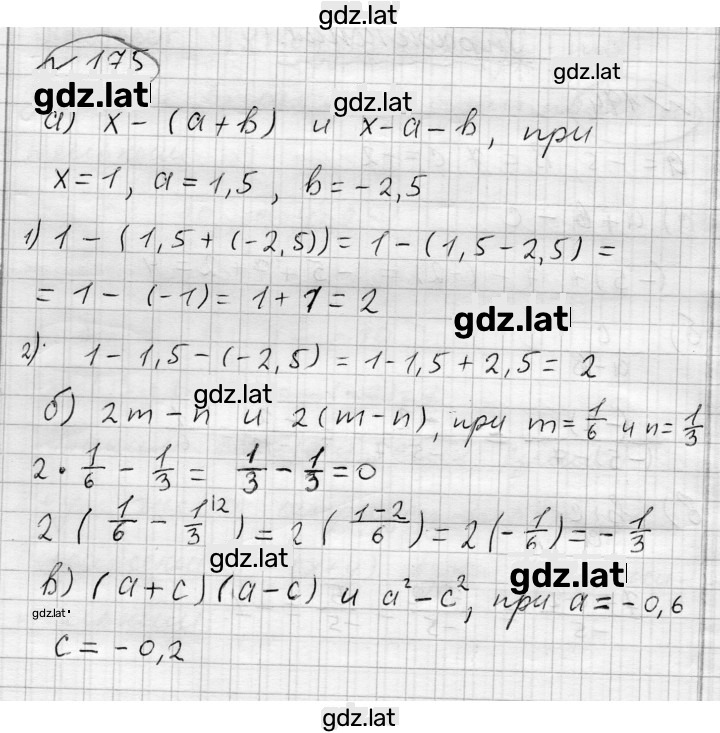 gdz.lat
№ 175
gdz.lat
gdz.lat gdz.lat
а) x - (a + b) и x - a - b, при
x = 1, a = 1,5, b = -2,5
1) 1 - (1,5 + (-2,5)) = 1 - (1,5 - 2,5) =
= 1 - (-1) = 1 + 1 = 2
gdz.lat
2) 1 - 1,5 - (-2,5) = 1 - 1,5 + 2,5 = 2
gdz.lat
б) 2m - n и 2(m - n), при m = 1/6 и n = 1/3
2 · 1/6 - 1/3 = 1/3 - 1/3 = 0
2 (1/6 - 1/3 |2) = 2 ((1-2)/6) = 2(-1/6) = -1/3
gdz.lat gdz.lat
в) (a + c)(a - c) и a² - c², при a = -0,6
gdz.lat
c = -0,2
gdz.lat